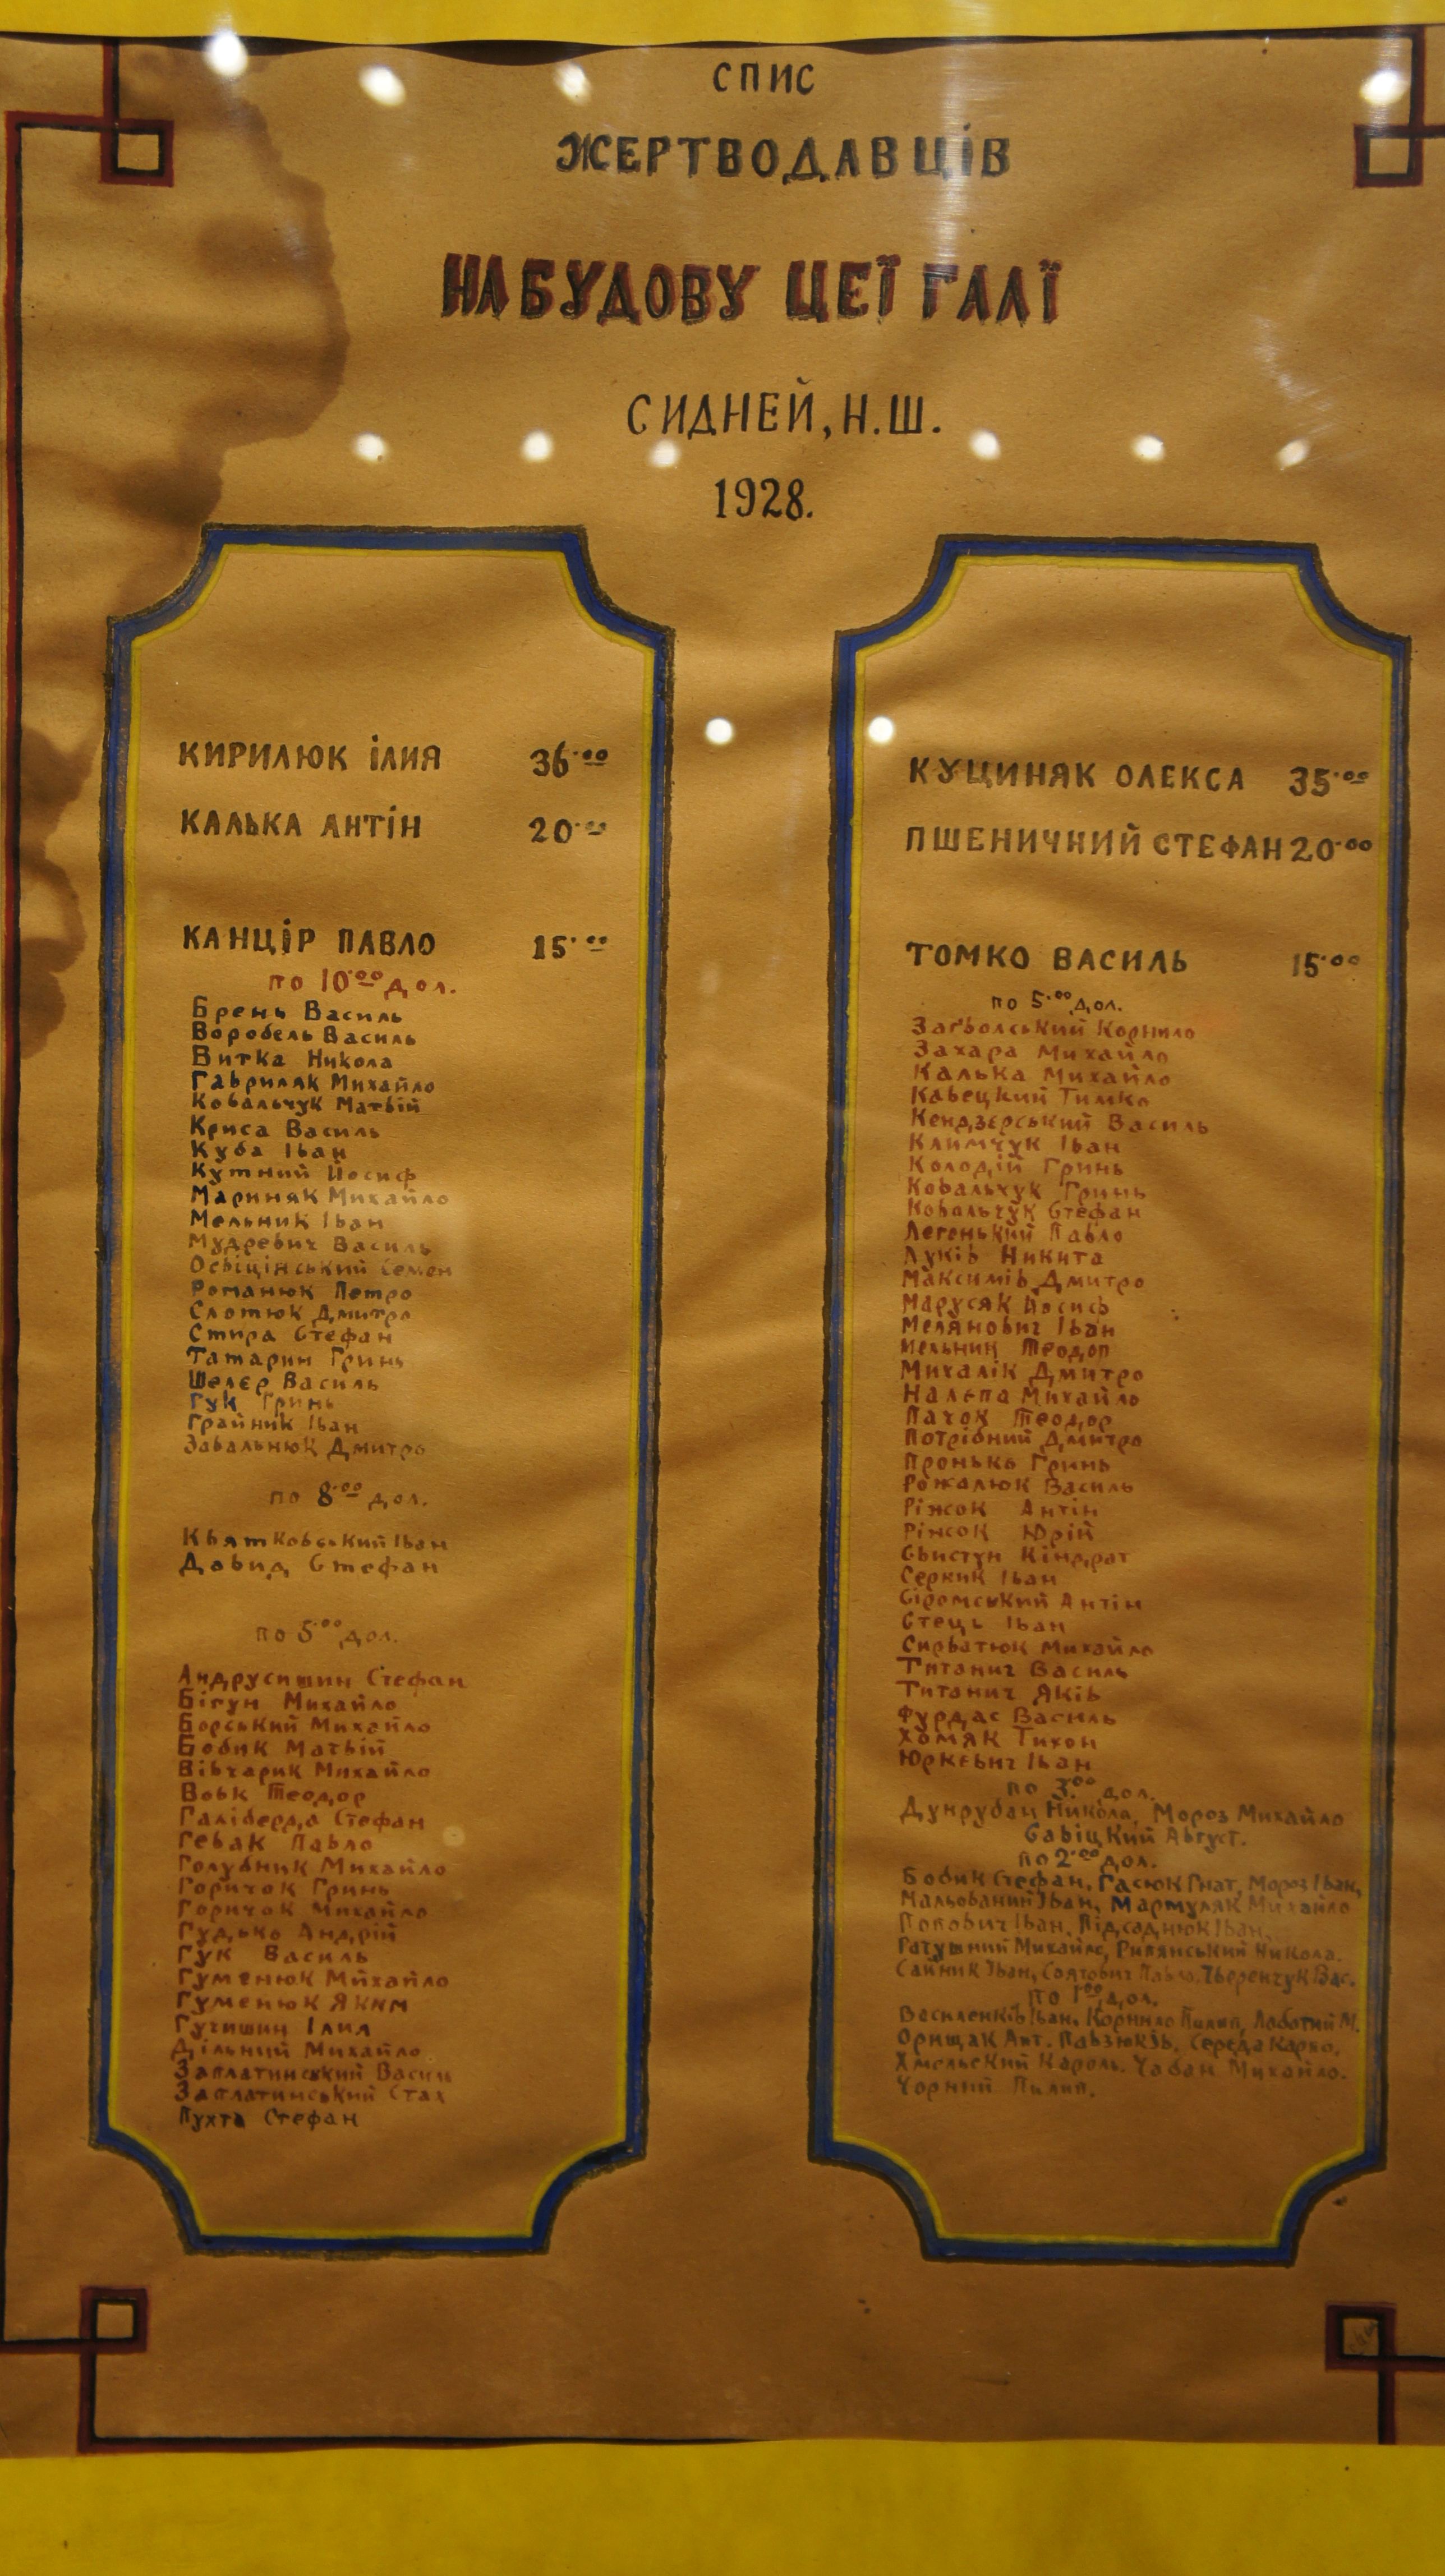 СПИС
ЖЕРТВОДАВЦІВ
НА БУДОВУ ЦЕЇ ГАЛЇ
СИДНЕЙ, Н.Ш.
1928.
КИРИЛЮК ІЛИЯ 36.00
КАЛЬКА АНТІН 20.00
КАНЦІР ПАВЛО 15.00
по 10.00 дол.
Брень Василь
Воробель Василь
Витка Никола
Гавриляк Михайло
Ковальчук Матвій
Криса Василь
Куба Іван
Кутний Йосиф
Мариняк Михайло
Мельник Іван
Мудревич Василь
Освіцінський Семен
Романюк Петро
Слотюк Дмитро
Стира Стефан
Татарин Гринь
Шелєр Василь
Гук Гринь
Грайник Іван
Завальнюк Дмитро
по 8.00 дол.
Квятковський Іван
Давид Стефан
по 5.00 дол.
Андрусишин Стефан
Бігун Михайло
Борський Михайло
Бобик Матвій
Вівчарик Михайло
Вовк Теодор
Галіберда Стефан
Гевак Павло
Голубник Михайло
Горичок Гринь
Горичок Михайло
Гудзько Андрій
Гук Василь
Гуменюк Михайло
Гуменюк Яким
Гучишин Ілия
Дільний Михайло
Заплатинський Васил
Заплатинський Стах
Пухта Стефан
КУЦИНЯК ОЛЕКСА 35.00
ПШЕНИЧНИЙ СТЕФАН 20.00
ТОМКО ВАСИЛЬ 15.00
по 5.00 дол.
Корнило
Захара Михайло
Калька Михайло
Кавецкий Тимко
Кендзєрський Василь
Климчук Іван
Колодій Гринь
Ковальчук Гринь
Ковальчук Стефан
Легенький Павло
Луків Никита
Максимів Дмитро
Марусяк Йосиф
Мелянович Іван
Мельник Теодор
Михалік Дмитро
Налепа Михайло
Пачок Теодор
Потрібний Дмитро
Пронько Гринь
Рожалюк Василь
Ріжок Антін
Ріжок Юрій
Свистун Кіндрат
Серник Іван
Сіромський Антін
Стець Іван
Сирватюк Михайло
Титанич Василь
Титанич Яків
Фурдас Василь
Хомяк Тихон
Юркевич Іван
по 3.00 дол.
Никола, Мороз Михайло
Савіцкий Август.
по 2.00 дол.
Бобик Стефан, Гасюк Гнат, Мороз Іван,
Мальований Іван, Мармуляк Михайло
Попович Іван, Підсаднюк Іван,
Ратушний Михайло, Рипянський Никола.
Сайник Іван, Павло, Тверенчук Вас.
по 1.00 дол.
Василенків Іван, Корнило Пилип, Лаботий М.
Орищак Ант. Павзюк Ів. Середа Карпо,
Хмельский Кароль. Чабан Михайло.
Чорний Пилип.